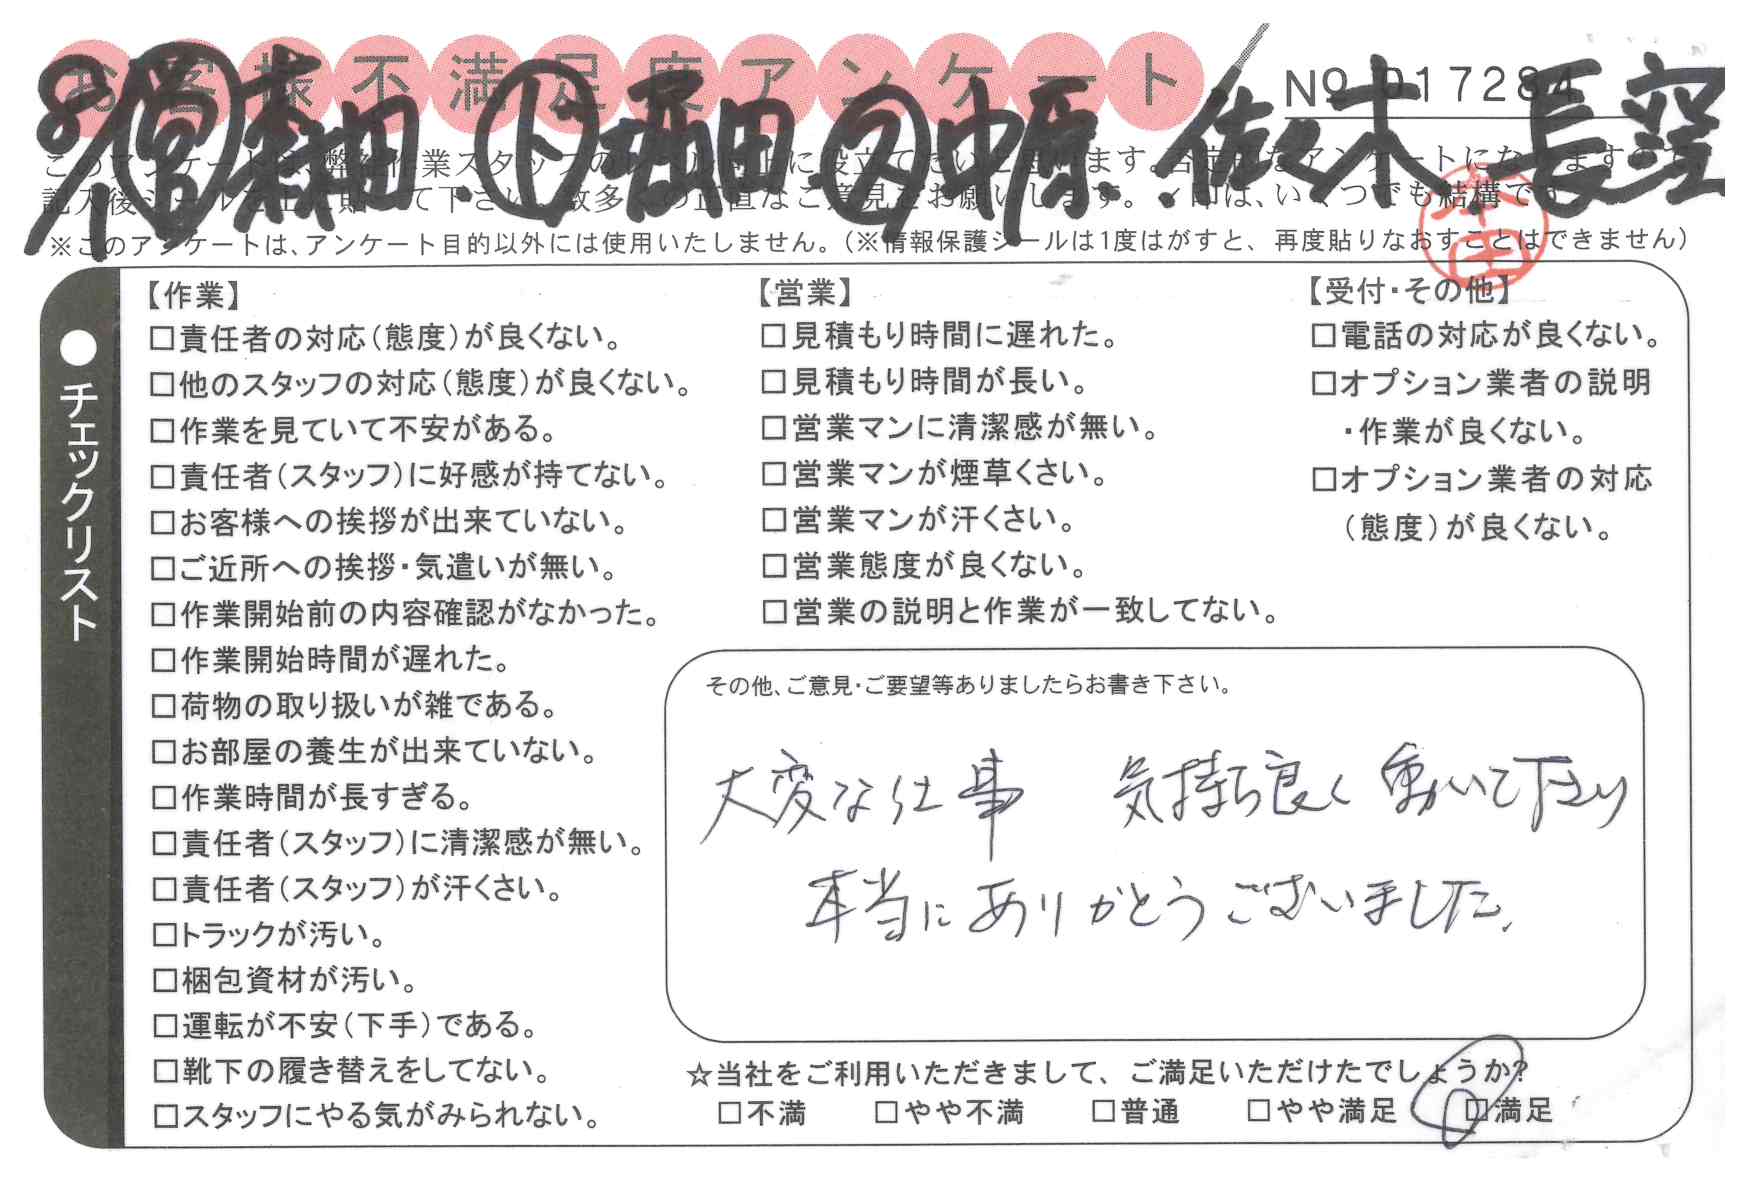 お客様不満足度アンケート
No 017284
8/ 営 森田 ト 堀田 中 佐々木 長窪
※このアンケートは、アンケート目的以外には使用いたしません。(※情報保護シールは1度はがすと、再度貼りなおすことはできません)
●チェックリスト
【作業】
□責任者の対応(態度)が良くない。
□他のスタッフの対応(態度)が良くない。
□作業を見ていて不安がある。
□責任者(スタッフ)に好感が持てない。
□お客様への挨拶が出来ていない。
□ご近所への挨拶・気遣いが無い。
□作業開始前の内容確認がなかった。
□作業開始時間が遅れた。
□荷物の取り扱いが雑である。
□お部屋の養生が出来ていない。
□作業時間が長すぎる。
□責任者(スタッフ)に清潔感が無い。
□責任者(スタッフ)が汗くさい。
□トラックが汚い。
□梱包資材が汚い。
□運転が不安(下手)である。
□靴下の履き替えをしてない。
□スタッフにやる気がみられない。
【営業】
□見積もり時間に遅れた。
□見積もり時間が長い。
□営業マンに清潔感が無い。
□営業マンが煙草くさい。
□営業マンが汗くさい。
□営業態度が良くない。
□営業の説明と作業が一致してない。
【受付・その他】
□電話の対応が良くない。
□オプション業者の説明
・作業が良くない。
□オプション業者の対応
(態度)が良くない。
その他、ご意見・ご要望等ありましたらお書き下さい。
大変な仕事 気持ち良く働いて下さり
本当にありがとうございました。
☆当社をご利用いただきまして、ご満足いただけたでしょうか?
□不満 □やや不満 □普通 □やや満足 □満足